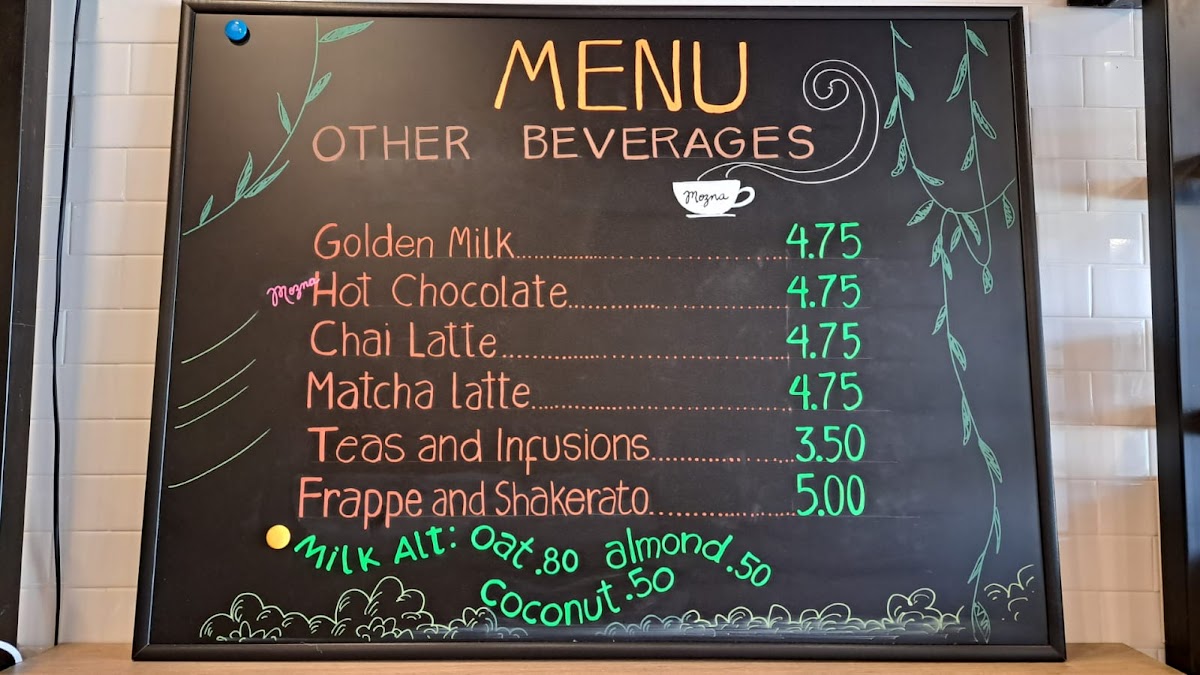 MENU
OTHER BEVERAGES
Mozna
Golden Milk 4.75
Mozna Hot Chocolate 4.75
Chai Latte 4.75
Matcha latte 4.75
Teas and Infusions 3.50
Frappe and Shakerato 5.00
Milk Alt: oat .80 almond .50
coconut .50